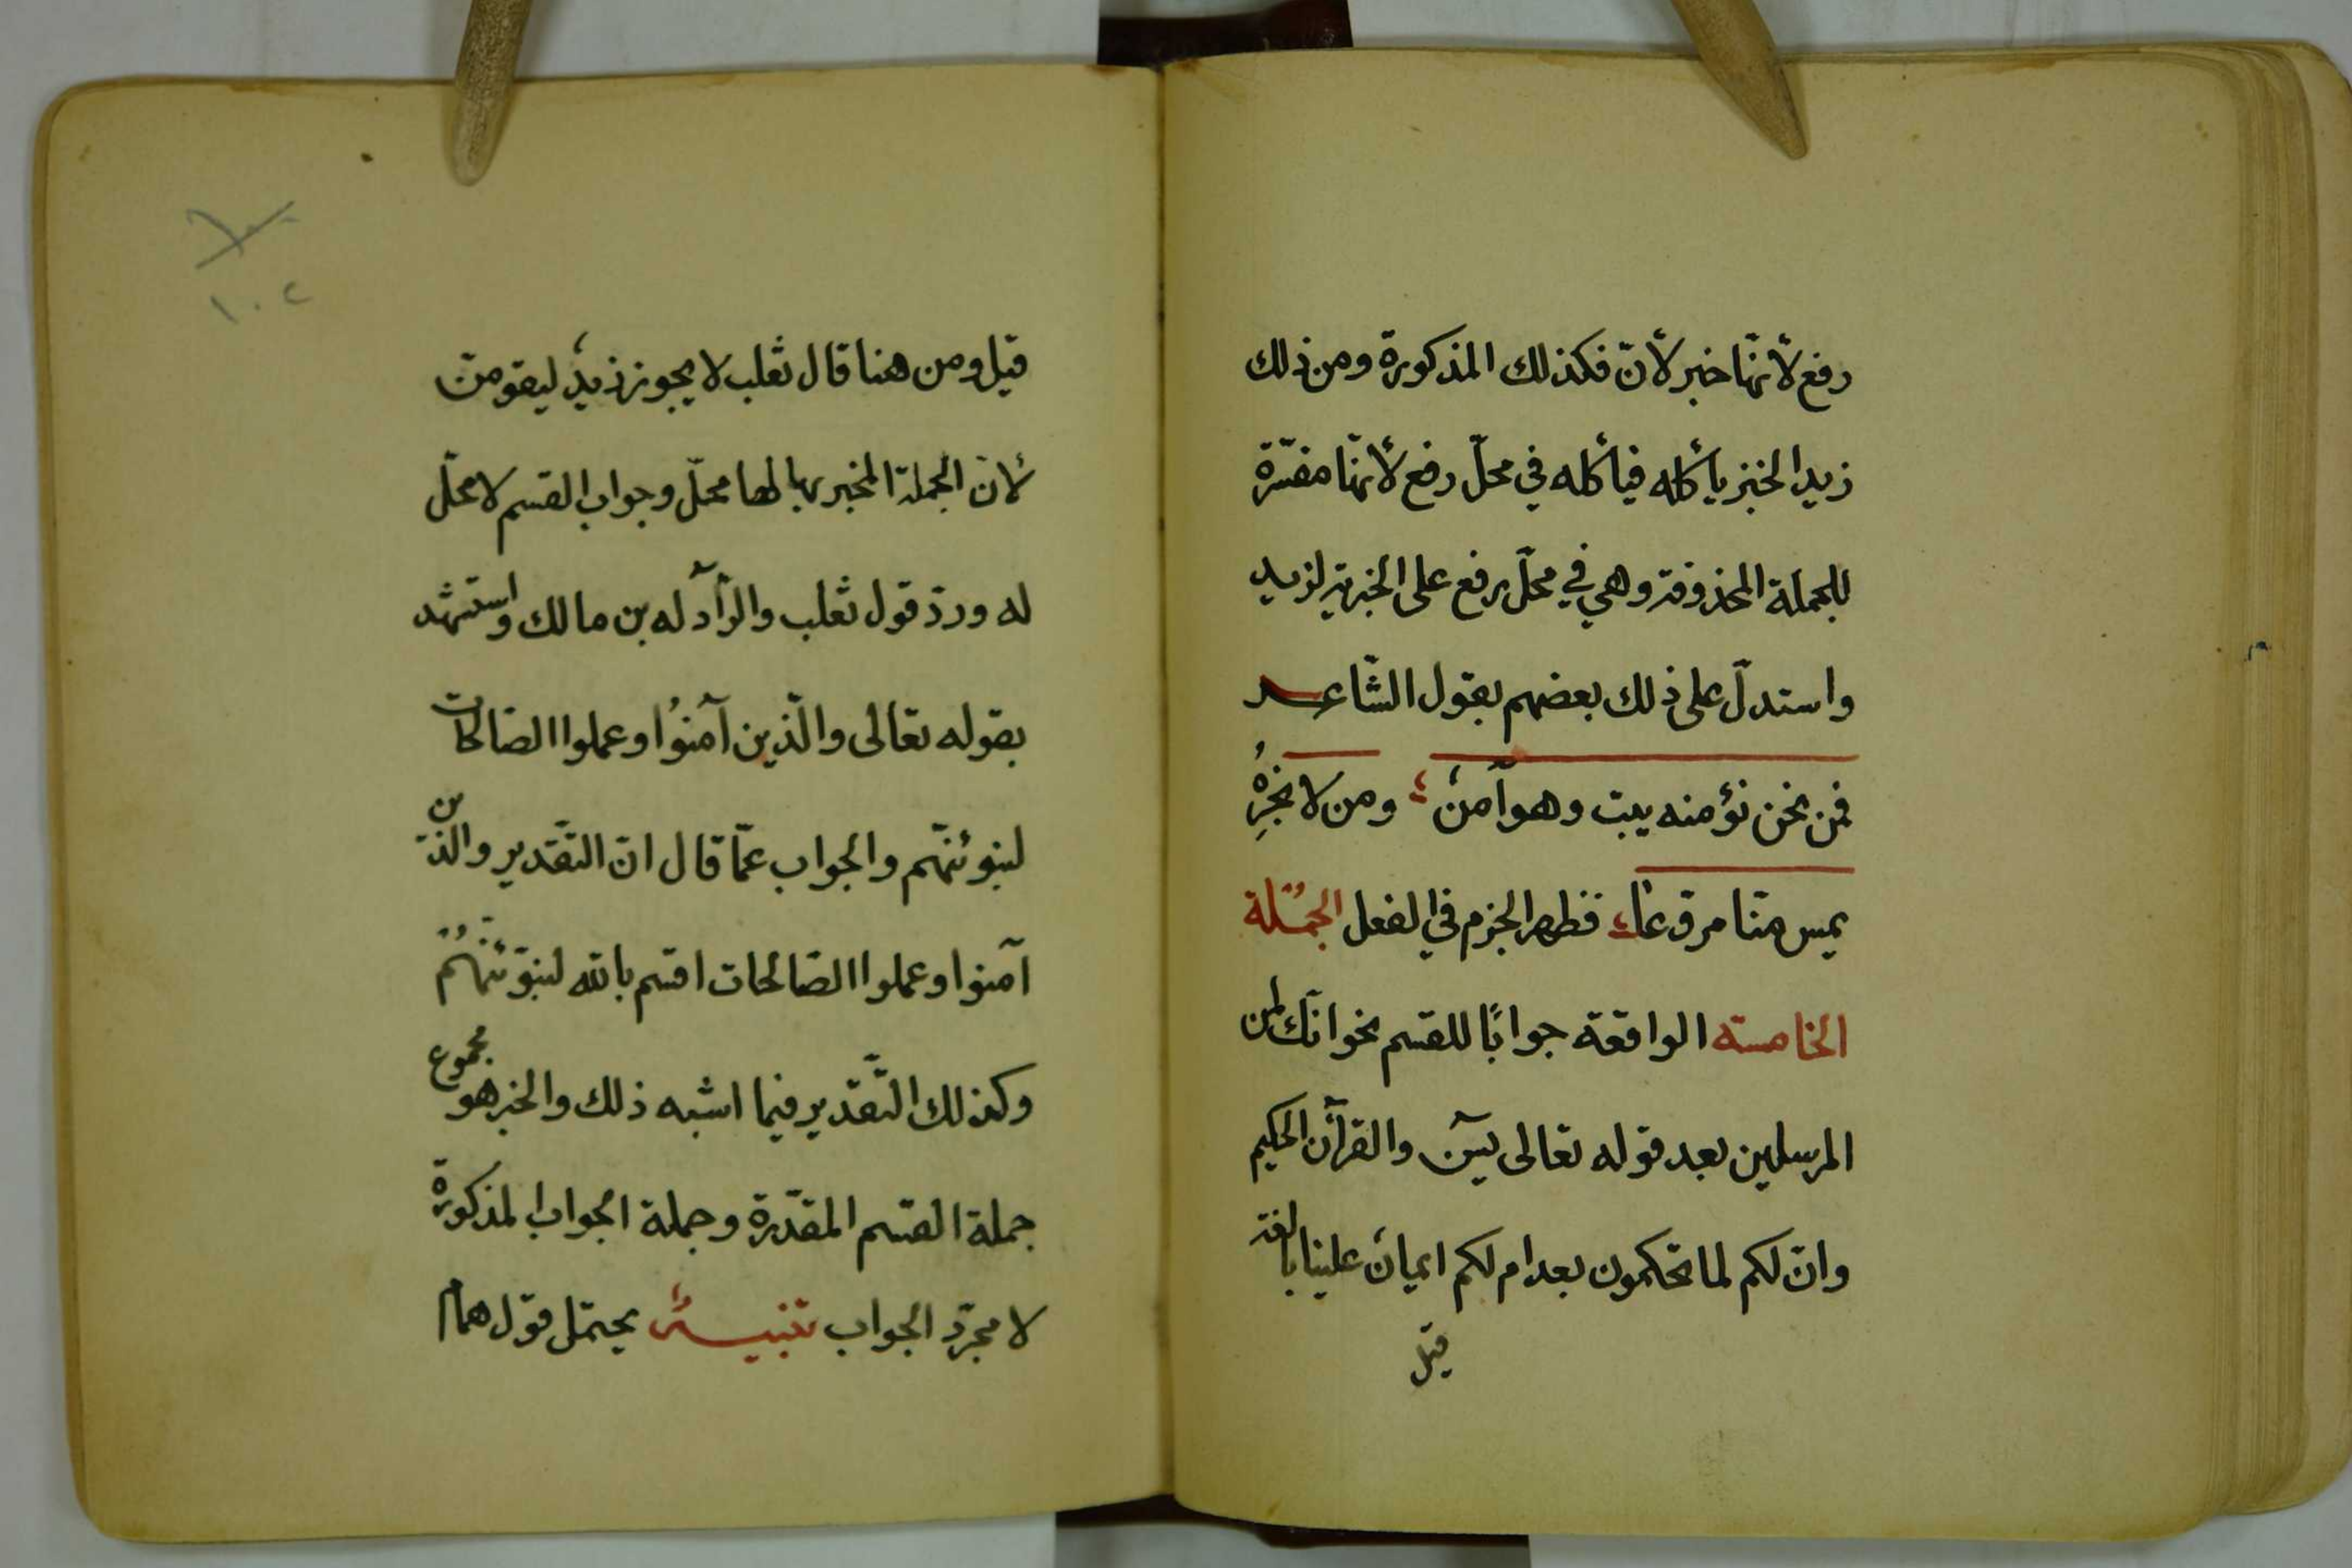 رفع لأنّها خبر لأنّ فكذلك المذكورة ومن ذلك
زيد الخبز يأكله فيأكله في محلّ رفع لأنّها مفسّرة
للجملة المحذوفة وهي في محلّ رفع على الخبرية لزيد
واستدلّ على ذلك بعضهم بقول الشّاعر
فمن نحن نؤمنه يبت وهو آمنٌ ومن لا نجرهُ
يمس منّا مروّعا فظهر الجزم في الفعل الجُملة
الخامسة الواقعة جوابًا للقسم نحو انّك لمن
المرسلين بعد قوله تعالى يسٓ والقرآن الحكيم
وانّ لكم لما تحكمون بعد ام لكم ايمانٌ علينا بالغة
قيل
١٠٢
قيل ومن هنا قال ثعلب لا يجوز زيدٌ ليقومنّ
لأنّ الجملة المخبر بها لها محلّ وجواب القسم لا محلّ
له وردّ قول ثعلب والرّادّ له بن مالك واستشهد
بقوله تعالى والّذين آمنوُا وعملوا الصّالحات
لنبوئنّهم والجواب عمّا قال انّ التّقدير والذين
آمنوا وعملوا الصّالحات اقسم بالله لنبوّئنّهُمْ
وكذلك التّقدير فيما اشبه ذلك والخبر هو مجموع
جملة القسم المقدّرة وجملة الجواب المذكورة
لا مجرّد الجواب تنبيهٌ يحتمل قول همام